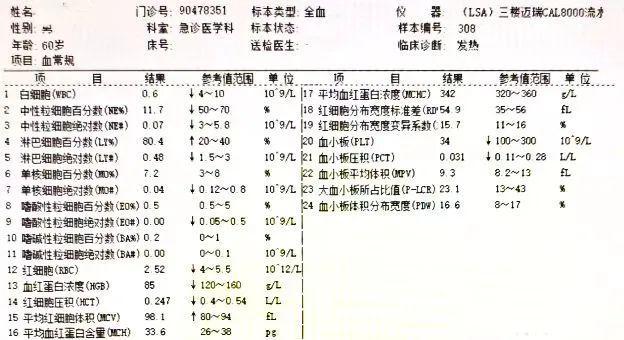 姓名: 门诊号: 90478351 标本类型: 全血 仪 器: (LSA)三楼迈瑞CAL8000流水
性别: 男 科室: 急诊医学科 标本状态: 样本编号: 308
年龄: 60岁 床号: 送检医生: 临床诊断: 发热
项目: 血常规
项 目 结果 参考值范围 单 位 项 目 结果 参考值范围 单 位
1 白细胞(WBC) 0.6 ↓ 4~10 10^9/L 17 平均血红蛋白浓度(MCHC) 342 320~360 g/L
2 中性粒细胞百分数(NE%) 11.7 ↓ 50~70 % 18 红细胞分布宽度标准差(RD 54.9 35~56 fL
3 中性粒细胞绝对数(NE#) 0.07 ↓ 3~5.8 10^9/L 19 红细胞分布宽度变异系数( 15.7 11~16 %
4 淋巴细胞百分数(LY%) 80.4 ↑ 20~40 % 20 血小板(PLT) 34 ↓ 100~300 10^9/L
5 淋巴细胞绝对数(LY#) 0.48 ↓ 1.5~3 10^9/L 21 血小板压积(PCT) 0.031 ↓ 0.11~0.28 L/L
6 单核细胞百分数(MO%) 7.2 3~8 % 22 血小板平均体积(MPV) 9.3 8.2~13 fL
7 单核细胞绝对数(MO#) 0.04 ↓ 0.12~0.8 10^9/L 23 大血小板所占比值(P-LCR) 23.1 13~43 %
8 嗜酸性粒细胞百分数(EO%) 0.5 0.5~5 % 24 血小板体积分布宽度(PDW) 16.6 8~17 %
9 嗜酸性粒细胞绝对数(EO#) 0.00 ↓ 0.05~0.5 10^9/L
10 嗜碱性粒细胞百分数(BA%) 0.2 0~1 %
11 嗜碱性粒细胞绝对数(BA#) 0.00 0~0.1 10^9/L
12 红细胞(RBC) 2.52 ↓ 4~5.5 10^12/L
13 血红蛋白浓度(HGB) 85 ↓ 120~160 g/L
14 红细胞压积(HCT) 0.247 ↓ 0.4~0.54 L/L
15 平均红细胞体积(MCV) 98.1 ↑ 80~94 fL
16 平均血红蛋白含量(MCH) 33.6 26~38 pg